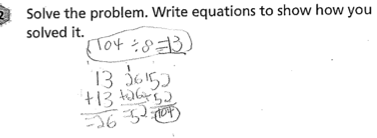 2 Solve the problem. Write equations to show how you
solved it.
104 ÷ 8 = 13
13 26 52
+13 +26 +52
=26 =52 =104